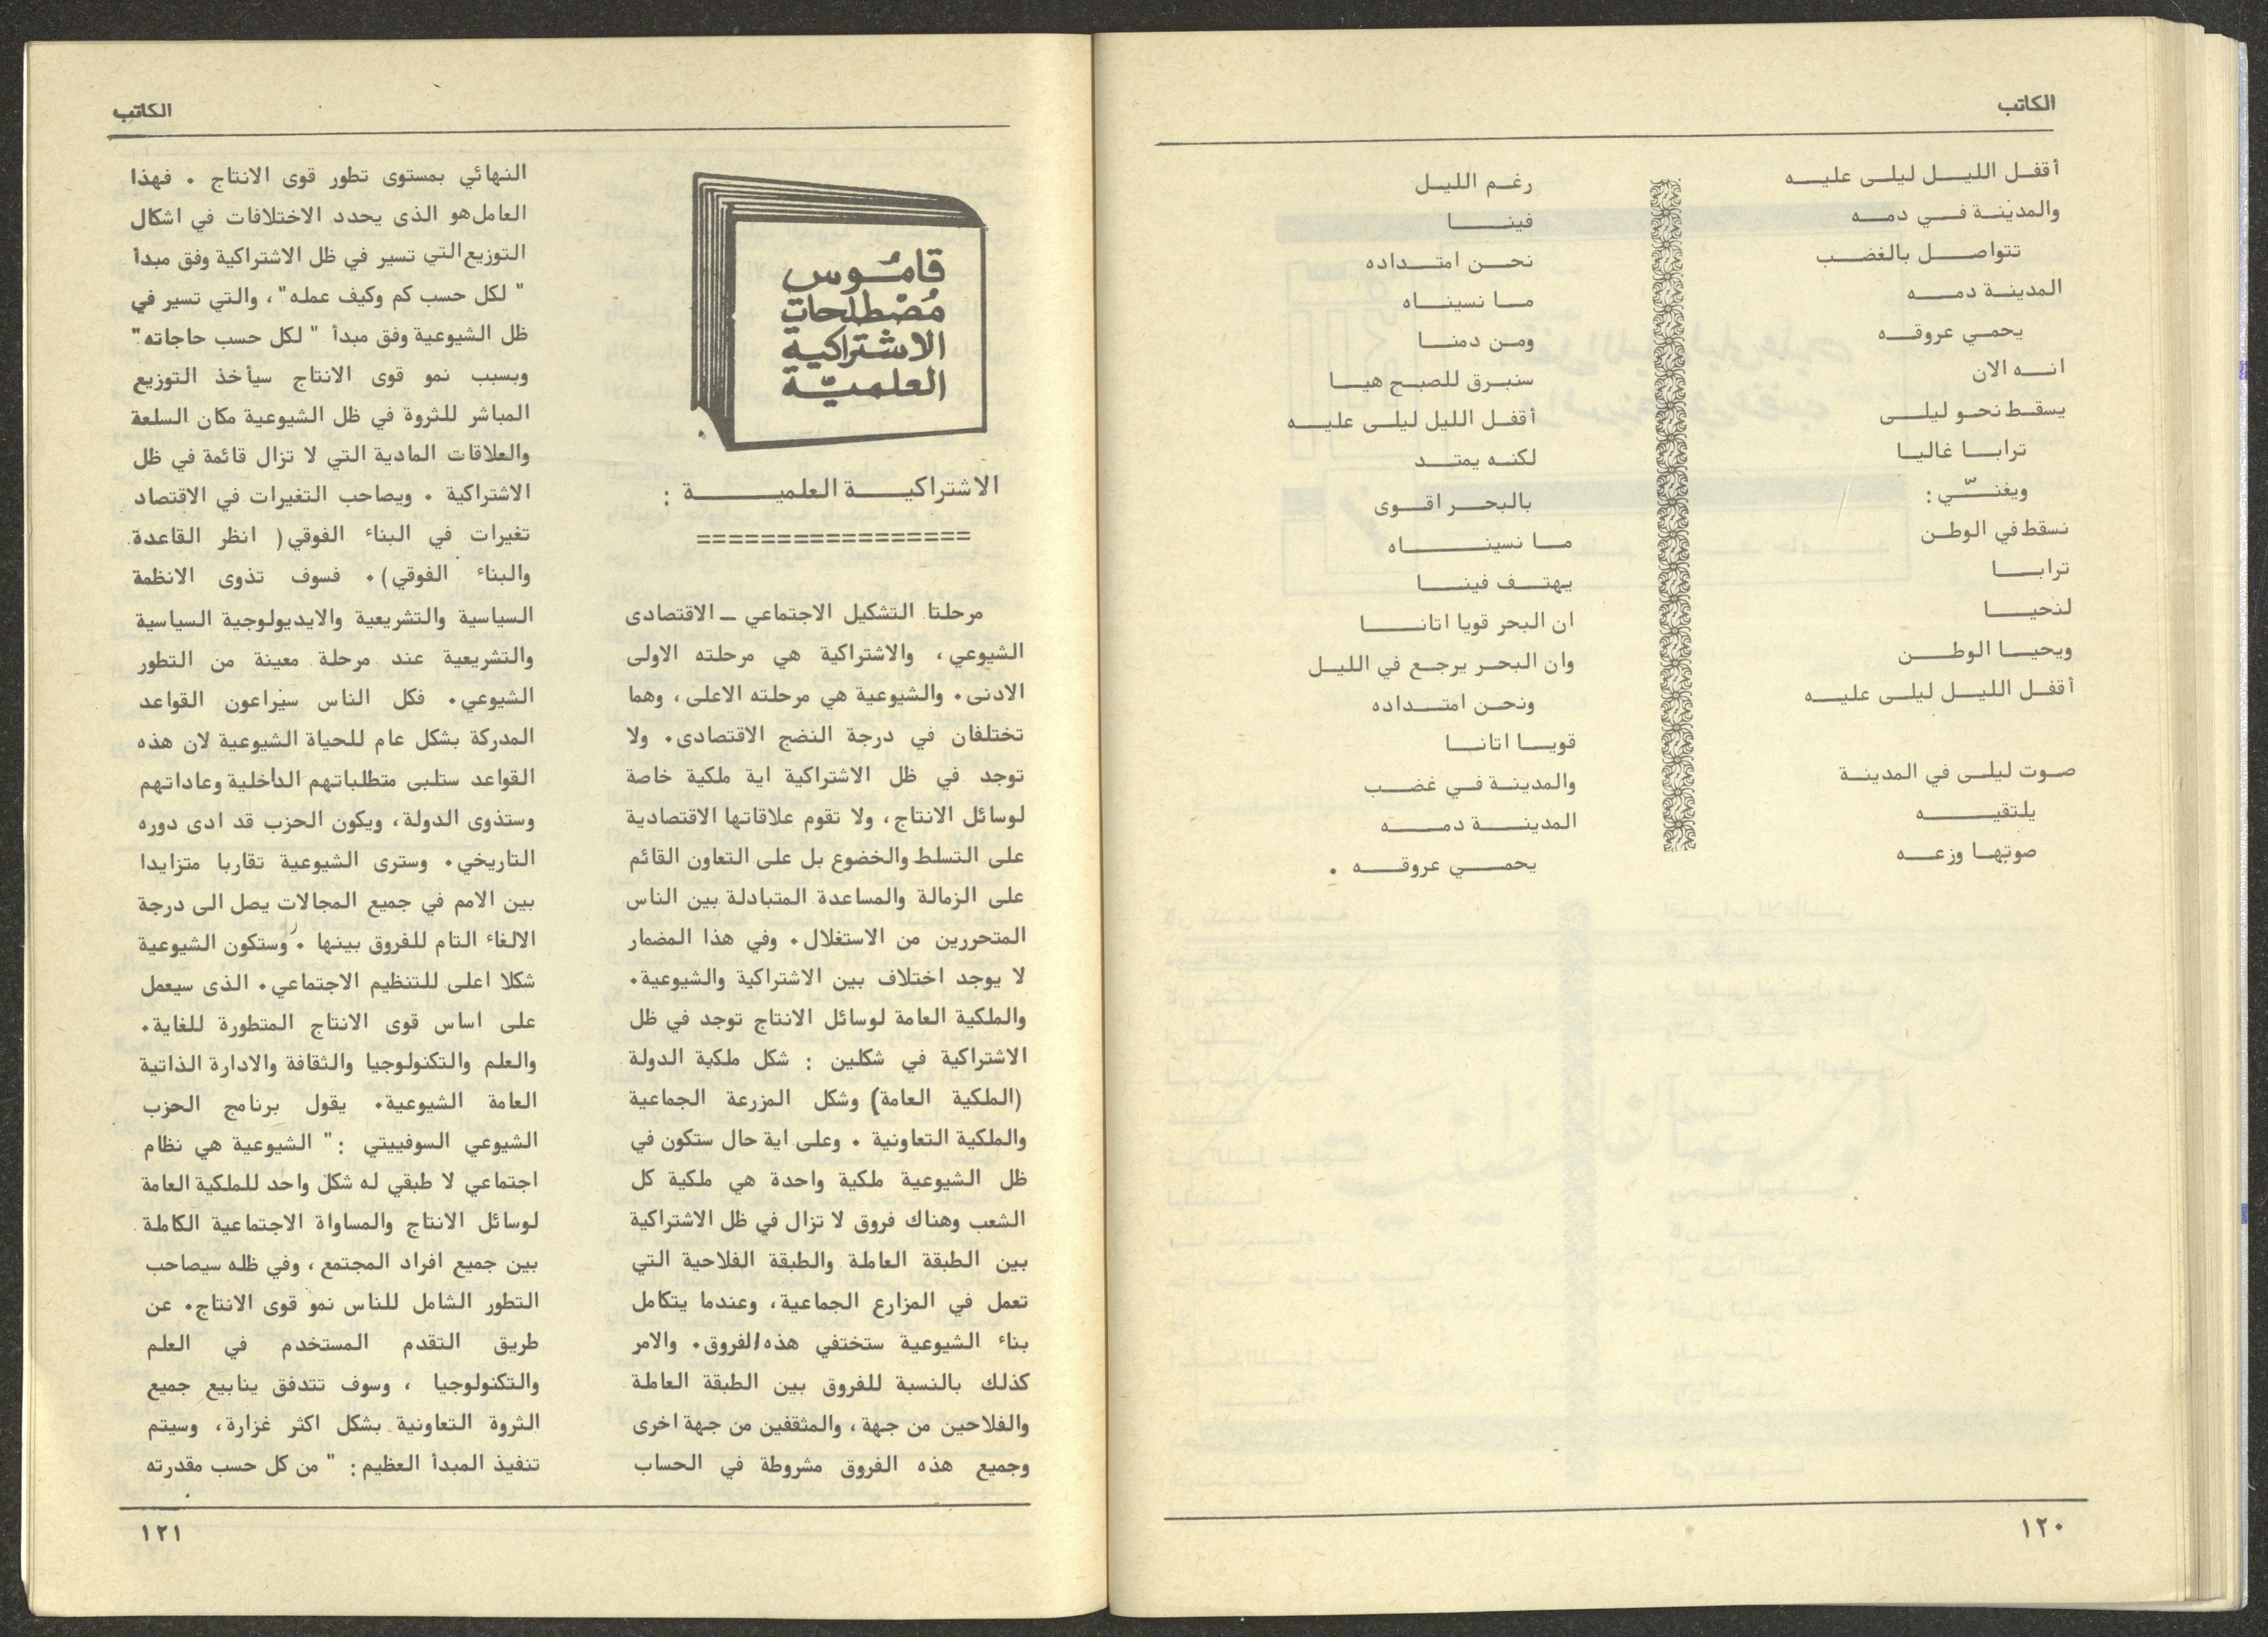 الكاتب
أقفل الليل ليلى عليه
والمدينة في دمه
تتواصل بالغضب
المدينة دمه
يحمي عروقه
انه الان
يسقط نحو ليلى
ترابا غاليا
ويغنّي :
نسقط في الوطن
ترابا
لنحيا
ويحيا الوطن
أقفل الليل ليلى عليه
صوت ليلى في المدينة
يلتقيه
صوتها وزعه
رغم الليل
فينا
نحن امتداده
ما نسيناه
ومن دمنا
سنبرق للصبح هيا
أقفل الليل ليلى عليه
لكنه يمتد
بالبحر اقوى
ما نسيناه
يهتف فينا
ان البحر قويا اتانا
وان البحر يرجع في الليل
ونحن امتداده
قويا اتانا
والمدينة في غضب
المدينة دمه
يحمي عروقه .
١٢٠
الكاتب
قاموس
مصطلحات
الاشتراكية
العلميّة
الاشتراكية العلمية :
=================
مرحلتا التشكيل الاجتماعي ـ الاقتصادى
الشيوعي، والاشتراكية هي مرحلته الاولى
الادنى. والشيوعية هي مرحلته الاعلى، وهما
تختلفان في درجة النضج الاقتصادى. ولا
توجد في ظل الاشتراكية اية ملكية خاصة
لوسائل الانتاج، ولا تقوم علاقاتها الاقتصادية
على التسلط والخضوع بل على التعاون القائم
على الزمالة والمساعدة المتبادلة بين الناس
المتحررين من الاستغلال. وفي هذا المضمار
لا يوجد اختلاف بين الاشتراكية والشيوعية.
والملكية العامة لوسائل الانتاج توجد في ظل
الاشتراكية في شكلين : شكل ملكية الدولة
(الملكية العامة) وشكل المزرعة الجماعية
والملكية التعاونية . وعلى اية حال ستكون في
ظل الشيوعية ملكية واحدة هي ملكية كل
الشعب وهناك فروق لا تزال في ظل الاشتراكية
بين الطبقة العاملة والطبقة الفلاحية التي
تعمل في المزارع الجماعية، وعندما يتكامل
بناء الشيوعية ستختفي هذه الفروق. والامر
كذلك بالنسبة للفروق بين الطبقة العاملة
والفلاحين من جهة، والمثقفين من جهة اخرى
وجميع هذه الفروق مشروطة في الحساب
النهائي بمستوى تطور قوى الانتاج . فهذا
العامل هو الذى يحدد الاختلافات في اشكال
التوزيع التي تسير في ظل الاشتراكية وفق مبدأ
" لكل حسب كم وكيف عمله"، والتي تسير في
ظل الشيوعية وفق مبدأ " لكل حسب حاجاته"
وبسبب نمو قوى الانتاج سيأخذ التوزيع
المباشر للثروة في ظل الشيوعية مكان السلعة
والعلاقات المادية التي لا تزال قائمة في ظل
الاشتراكية . ويصاحب التغيرات في الاقتصاد
تغيرات في البناء الفوقي( انظر القاعدة
والبناء الفوقي). فسوف تذوى الانظمة
السياسية والتشريعية والايديولوجية السياسية
والتشريعية عند مرحلة معينة من التطور
الشيوعي. فكل الناس سيراعون القواعد
المدركة بشكل عام للحياة الشيوعية لان هذه
القواعد ستلبى متطلباتهم الداخلية وعاداتهم
وستذوى الدولة، ويكون الحزب قد ادى دوره
التاريخي. وسترى الشيوعية تقاربا متزايدا
بين الامم في جميع المجالات يصل الى درجة
الالغاء التام للفروق بينها . وستكون الشيوعية
شكلا اعلى للتنظيم الاجتماعي. الذى سيعمل
على اساس قوى الانتاج المتطورة للغاية.
والعلم والتكنولوجيا والثقافة والادارة الذاتية
العامة الشيوعية. يقول برنامج الحزب
الشيوعي السوفييتي :" الشيوعية هي نظام
اجتماعي لا طبقي له شكل واحد للملكية العامة
لوسائل الانتاج والمساواة الاجتماعية الكاملة
بين جميع افراد المجتمع، وفي ظله سيصاحب
التطور الشامل للناس نمو قوى الانتاج. عن
طريق التقدم المستخدم في العلم
والتكنولوجيا ، وسوف تتدفق ينابيع جميع
الثروة التعاونية بشكل اكثر غزارة، وسيتم
تنفيذ المبدأ العظيم: " من كل حسب مقدرته
١٢١